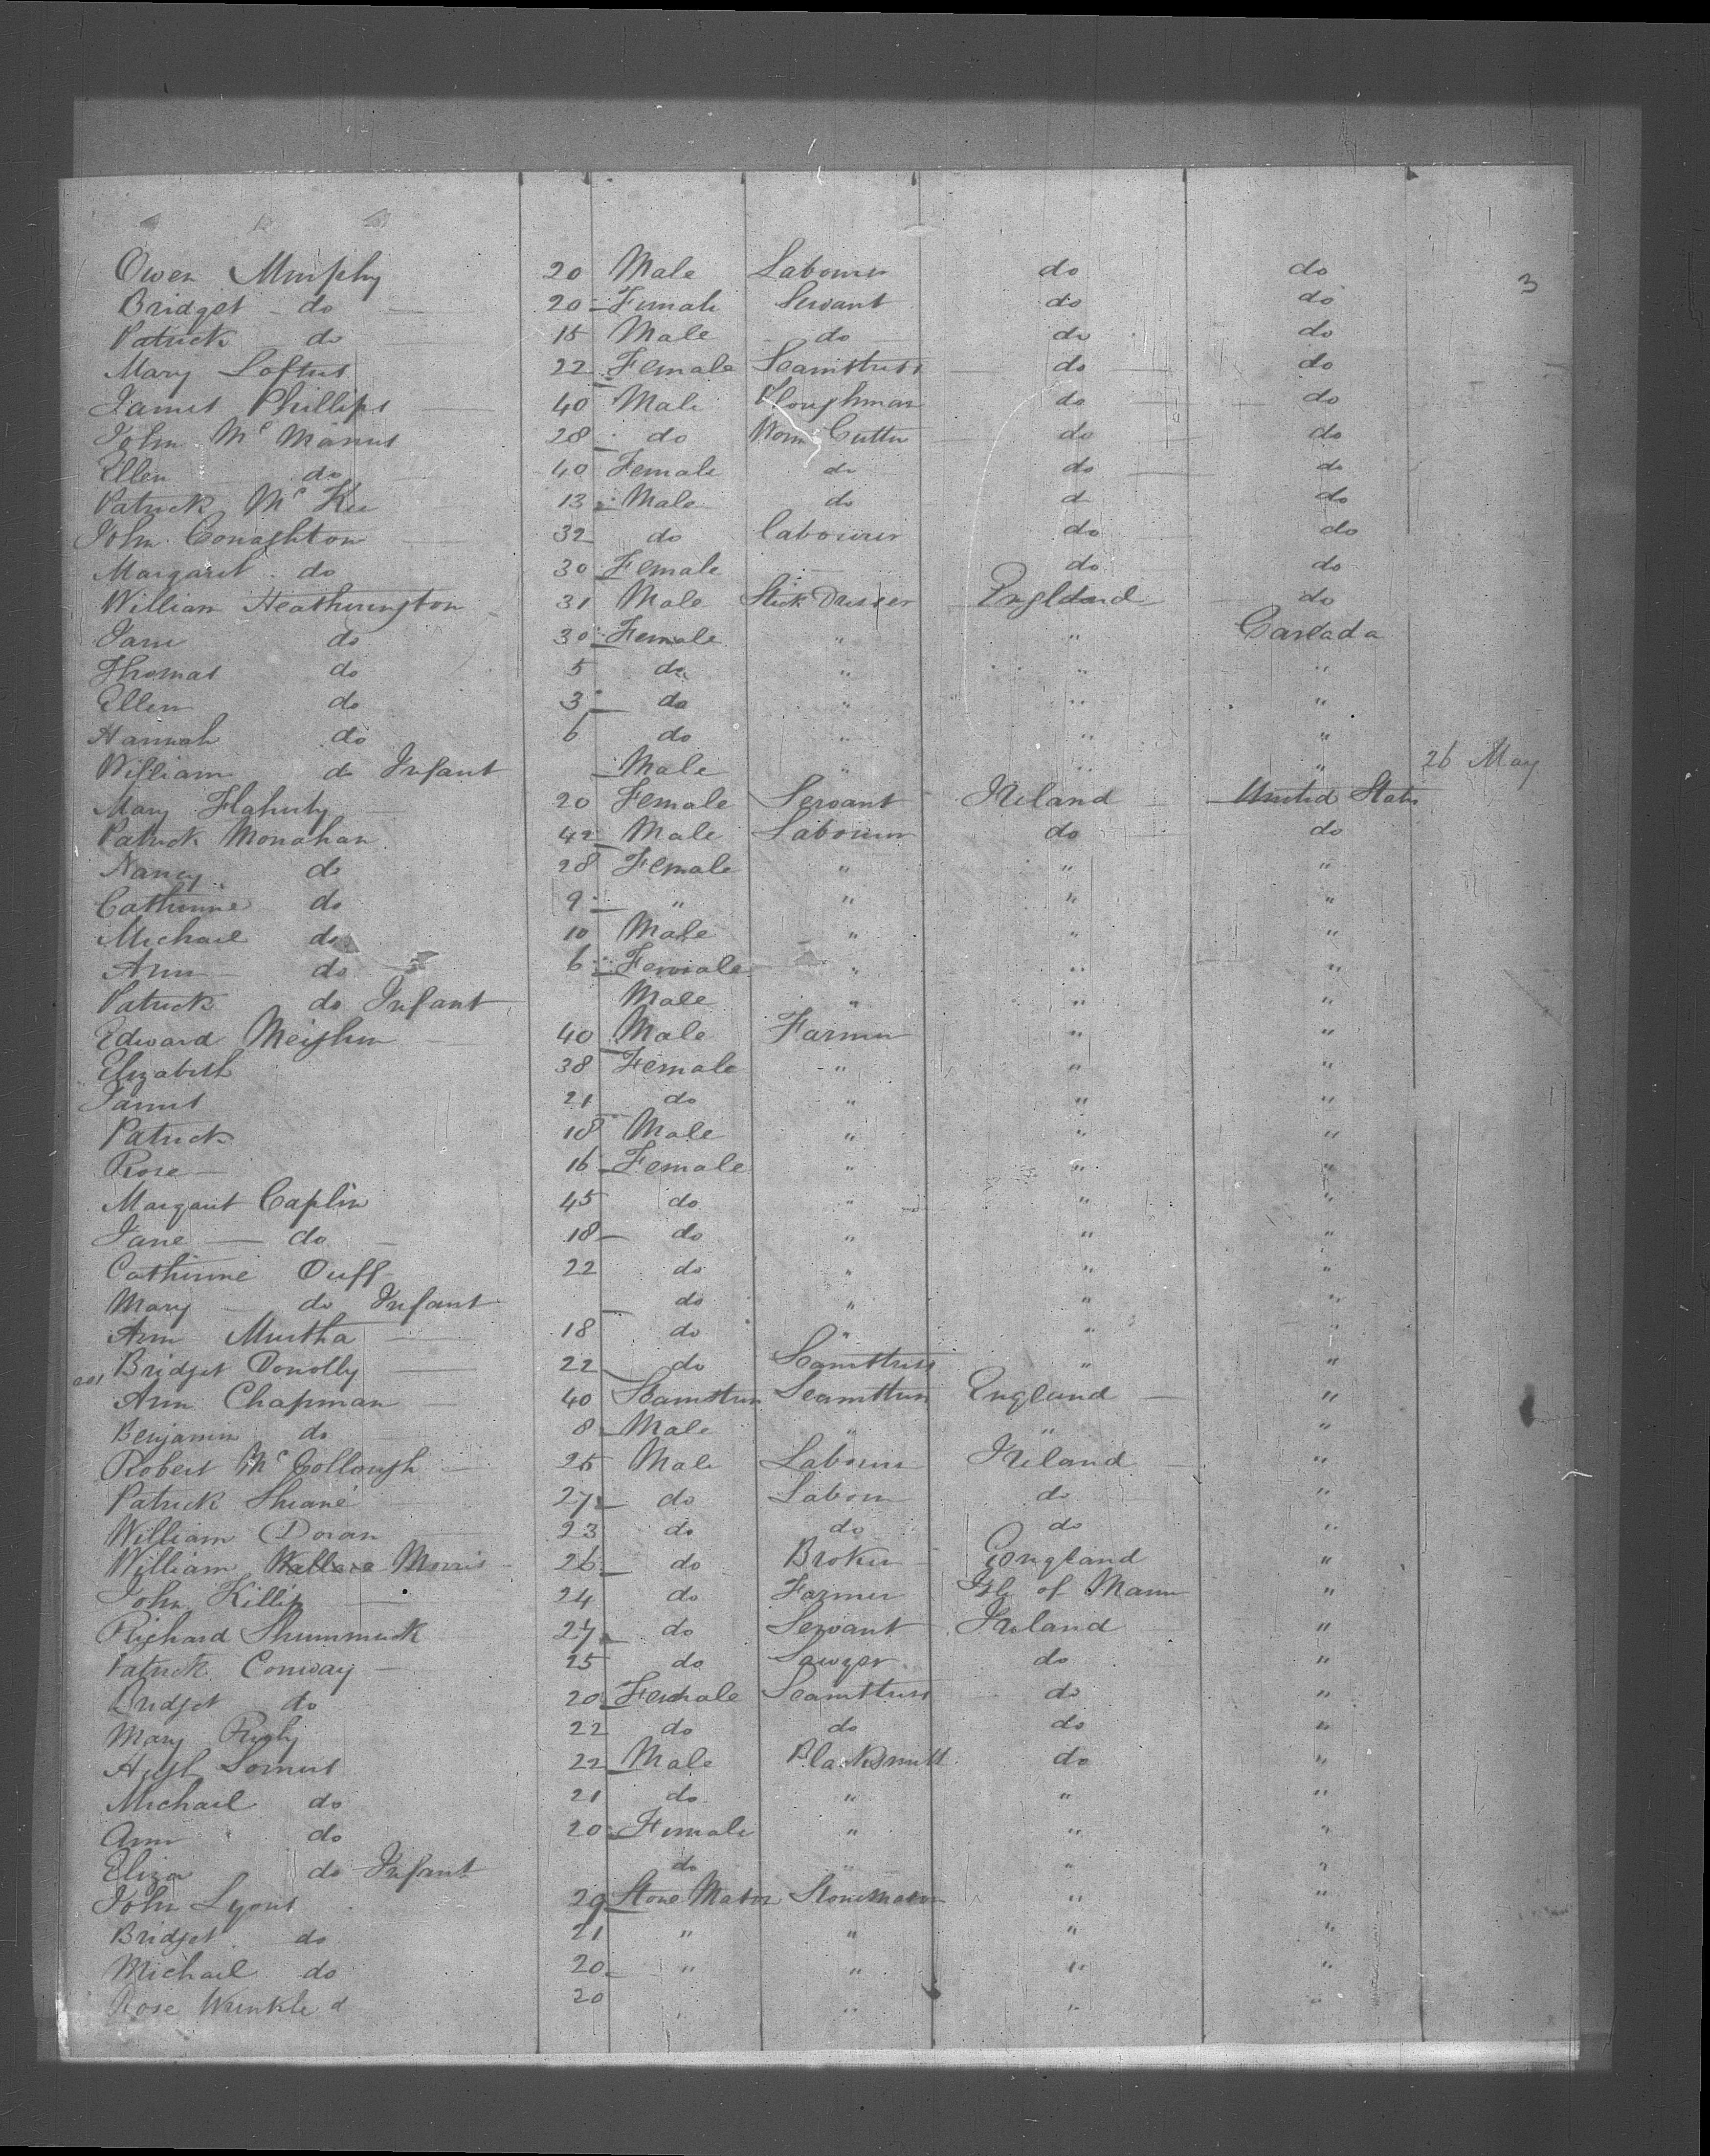 Owen Murphy 20 Male Labourer do do 3
Bridget do 20 Female Servant do do
Patrick do 15 Male do do do
Mary Loftus 22 Female Seamstress do do
James Phillips 40 Male Ploughman do do
John Mc Manus 28 do Cutter do do
Ellen do 40 Female do do do
Patrick Mc Kee 13 Male do d do
John Conaghton 32 do labourer do do
Margaret do 30 Female do do
William Heatherington 31 Male Stick Dresser England do
Jane do 30 Female " " Canada
Thomas do 5 do " " "
Ellen do 3 do " " "
Hannah do 6 do " " "
William do Infant Male " " " 26 May
Mary Flaherty 20 Female Servant Ireland United States
Patrick Monahan 42 Male Labourer do do
Nancy do 28 Female " " "
Catherine do 9 " " " "
Michael do 10 Male " " "
Ann do 6 Female " " "
Patrick do Infant Male " " "
Edward Meighen 40 Male Farmer " "
Elizabeth 38 Female " " "
James 21 do " " "
Patrick 18 Male " " "
Rose 16 Female " " "
Margaret Caplin 45 do " " "
Jane do 18 do " " "
Catherine Duff 22 do " " "
Mary do Infant do " " "
Ann Murtha 18 do " " "
Bridget Donolly 22 do Seamstress " "
Ann Chapman 40 Seamstress Seamstress England "
Benjamin do 8 Male " " "
Robert Mc Collough 25 Male Labourer Ireland "
Patrick Shiane 27 do Labour do "
William Doran 23 do do do "
William Wallace Morris 26 do Broker England "
John Killip 24 do Farmer Isle of Mann "
Richard 27 do Servant Ireland "
Patrick Conway 25 do Sawyer do "
Bridget do 20 Female Seamstress do "
Mary 22 do do do "
Hugh Somers 22 Male Blacksmith do "
Michael do 21 do " " "
Ann do 20 Female " " "
Eliza do Infant do " " "
John Lyons 29 Stone Mason Stonemason " "
Bridget do 21 " " " "
Michael do 20 " " " "
Rose 20 " " " "